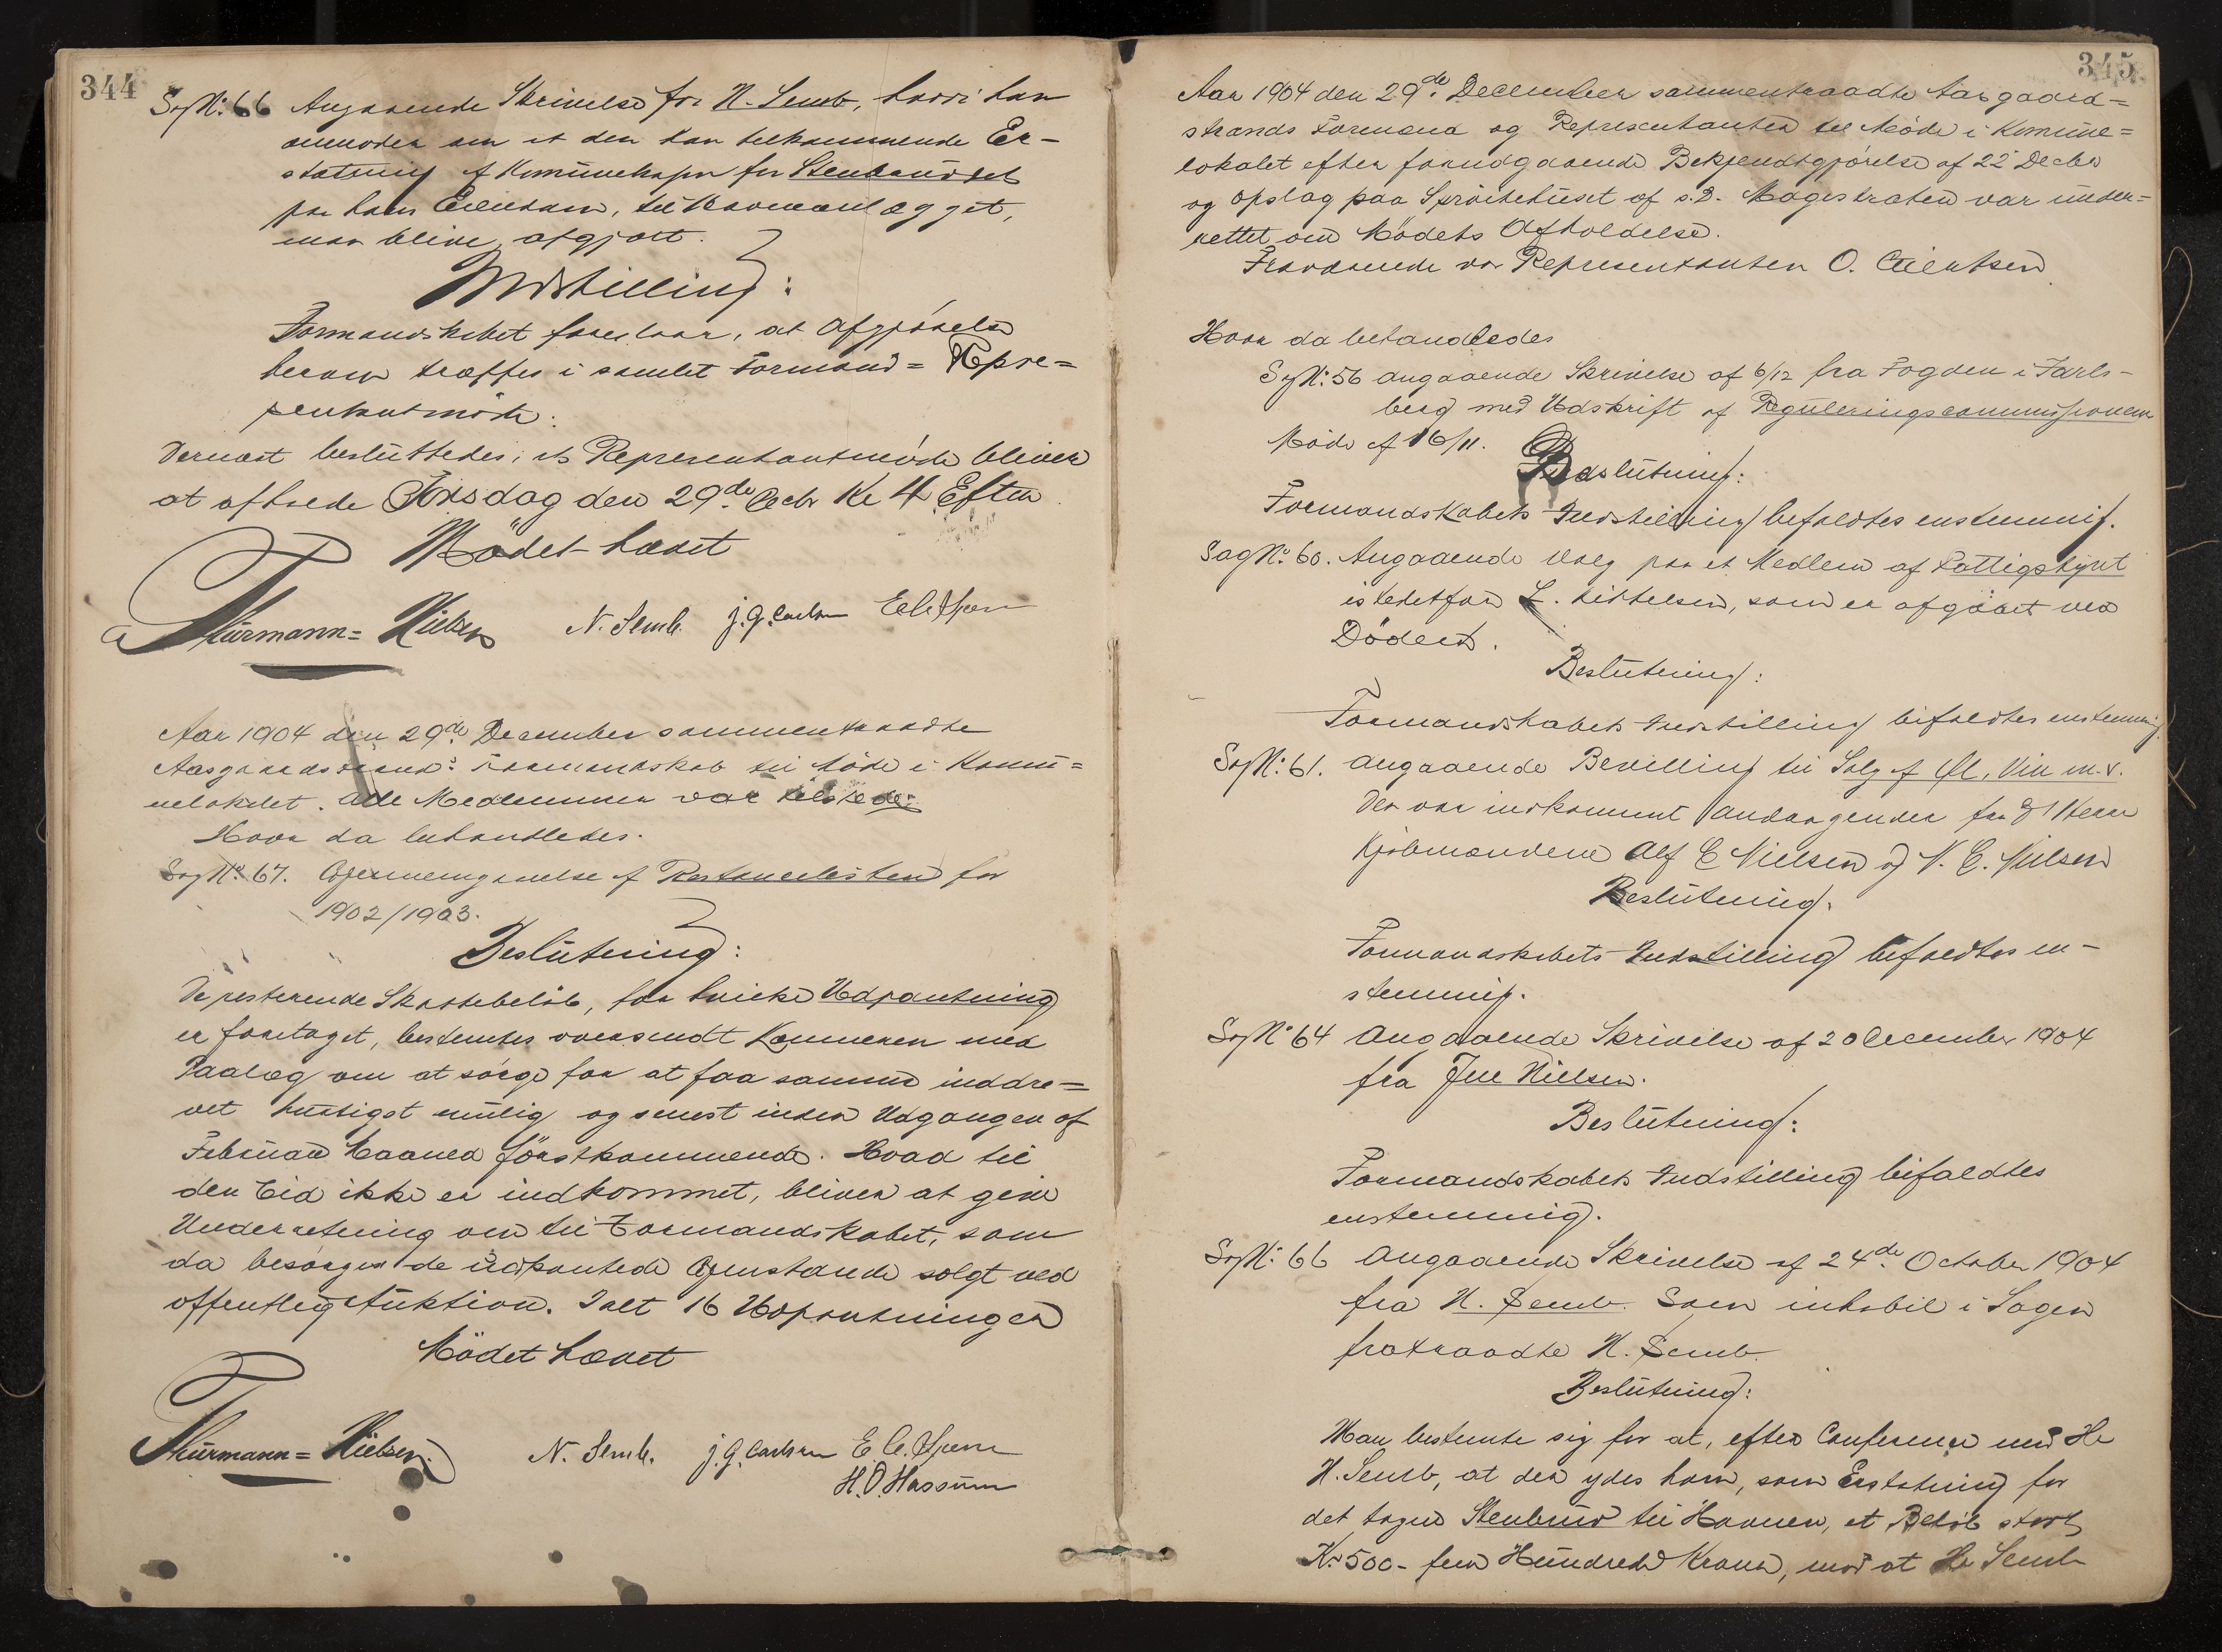 344
Sag No: 66 Angaaende Skrivelse fra N. Semb, hvori han
anmoder om at den ham tilkommende Er-
statning af Kommunekassen for Stenbruddet
paa hans Eiendom, til Havneanlægget,
maa blive afgjort.
Indstilling:
Formandskabet foreslaar, at Afgjørelse
herom træffes i samlet Formand= Repre=
sentantmøde.
Dernæst besluttedes, at Representantmøde bliver
at afholde Torsdag den 29de Decbr Kl 4 Efterm
Mödet hævet
Thurmann=Nielsen N. Semb. J. G. Carlsen
Aar 1904 den 29de December sammentraadte
Aasgaardstrands Formandskab til Möde i Kommu=
nelokalet. Alle Medlemmer var tilstede.
Hvor da behandledes.
Sag No 67. Gjennemgaaelse af Restancelisten for
1902/1903.
Beslutning:
De resterende Skattebelöb, for hvilke Udpantning
er foretaget, bestemtes oversendt Kæmneren med
Paalæg om at sörge for at faa samme inddre=
vet hurtigst mulig og senest inden Udgangen af
Februar Maaned förstkommende. Hvad til
den Tid ikke er indkommet, bliver at give
Underretning om til Formandskabet, som
da besörger de udpantede Gjenstande solgt ved
offentlig Auktion. Ialt 16 Udpantninger
Mödet hævet
Thurmann=Nielsen. N. Semb. J. G. Carlsen
H. O. Hassum
345
Aar 1904 den 29de December sammentraadte Aasgaard=
strands Formænd og Representanter til Möde i Kommune=
lokalet efter forudgaaende Bekjendtgjörelse af 22 Decbr
og Opslag paa Spröitehuset af s.D. Magistraten var under=
rettet om Mödets Afholdelse.
Fraværende var Representanten O.
Hvor da behandledes
Sag No: 56 angaaende Skrivelse af 6/12 fra Fogden i Jarls-
berg med Udskrift af Reguleringscommissionens
Möde af 16/11.
Beslutning:
Formandskabets Indstilling bifaldtes enstemmig.
Sag No: 60. Angaaende Valg paa et Medlem af Fattigstyret
istedetfor L. Kittelsen, som er afgaaet ved
Döden.
Beslutning:
Formandskabets Indstilling bifaldtes enstemmig.
Sag No: 61. angaaende Bevilling til Salg af Öl, Vin m.v.
Der var indkommet Andragender fra DHerr
Kjöbmændene Alf E Nielsen og N. E. Nilsen
Beslutning.
Formandskabets Indstilling bifaldtes en-
stemmig.
Sag No 64 Angaaende Skrivelse af 20 December 1904
fra Jul Nielsen.
Beslutning:
Formandskabets Indstilling bifaldtes
enstemmig.
Sag No: 66 Angaaende Skrivelse af 24de October 1904
fra N. Semb. Som inhabil i Sagen
fratraadte N. Semb.
Beslutning:
Man bestemte sig for at, efter Conference med Hr
N. Semb, at der ydes ham, som Erstatning for
det tagne Stenbrud til Havnen, et Belöb stort
Kr 500- fem Hundrede Kroner, mod at Hr Semb